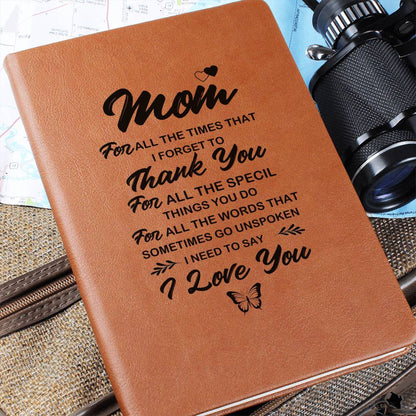 Mom
For ALL THE TIMES THAT
I FORGET TO
Thank You
For ALL THE SPECIL
THINGS YOU DO
For ALL THE WORDS THAT
SOMETIMES GO UNSPOKEN
I NEED TO SAY
I Love You